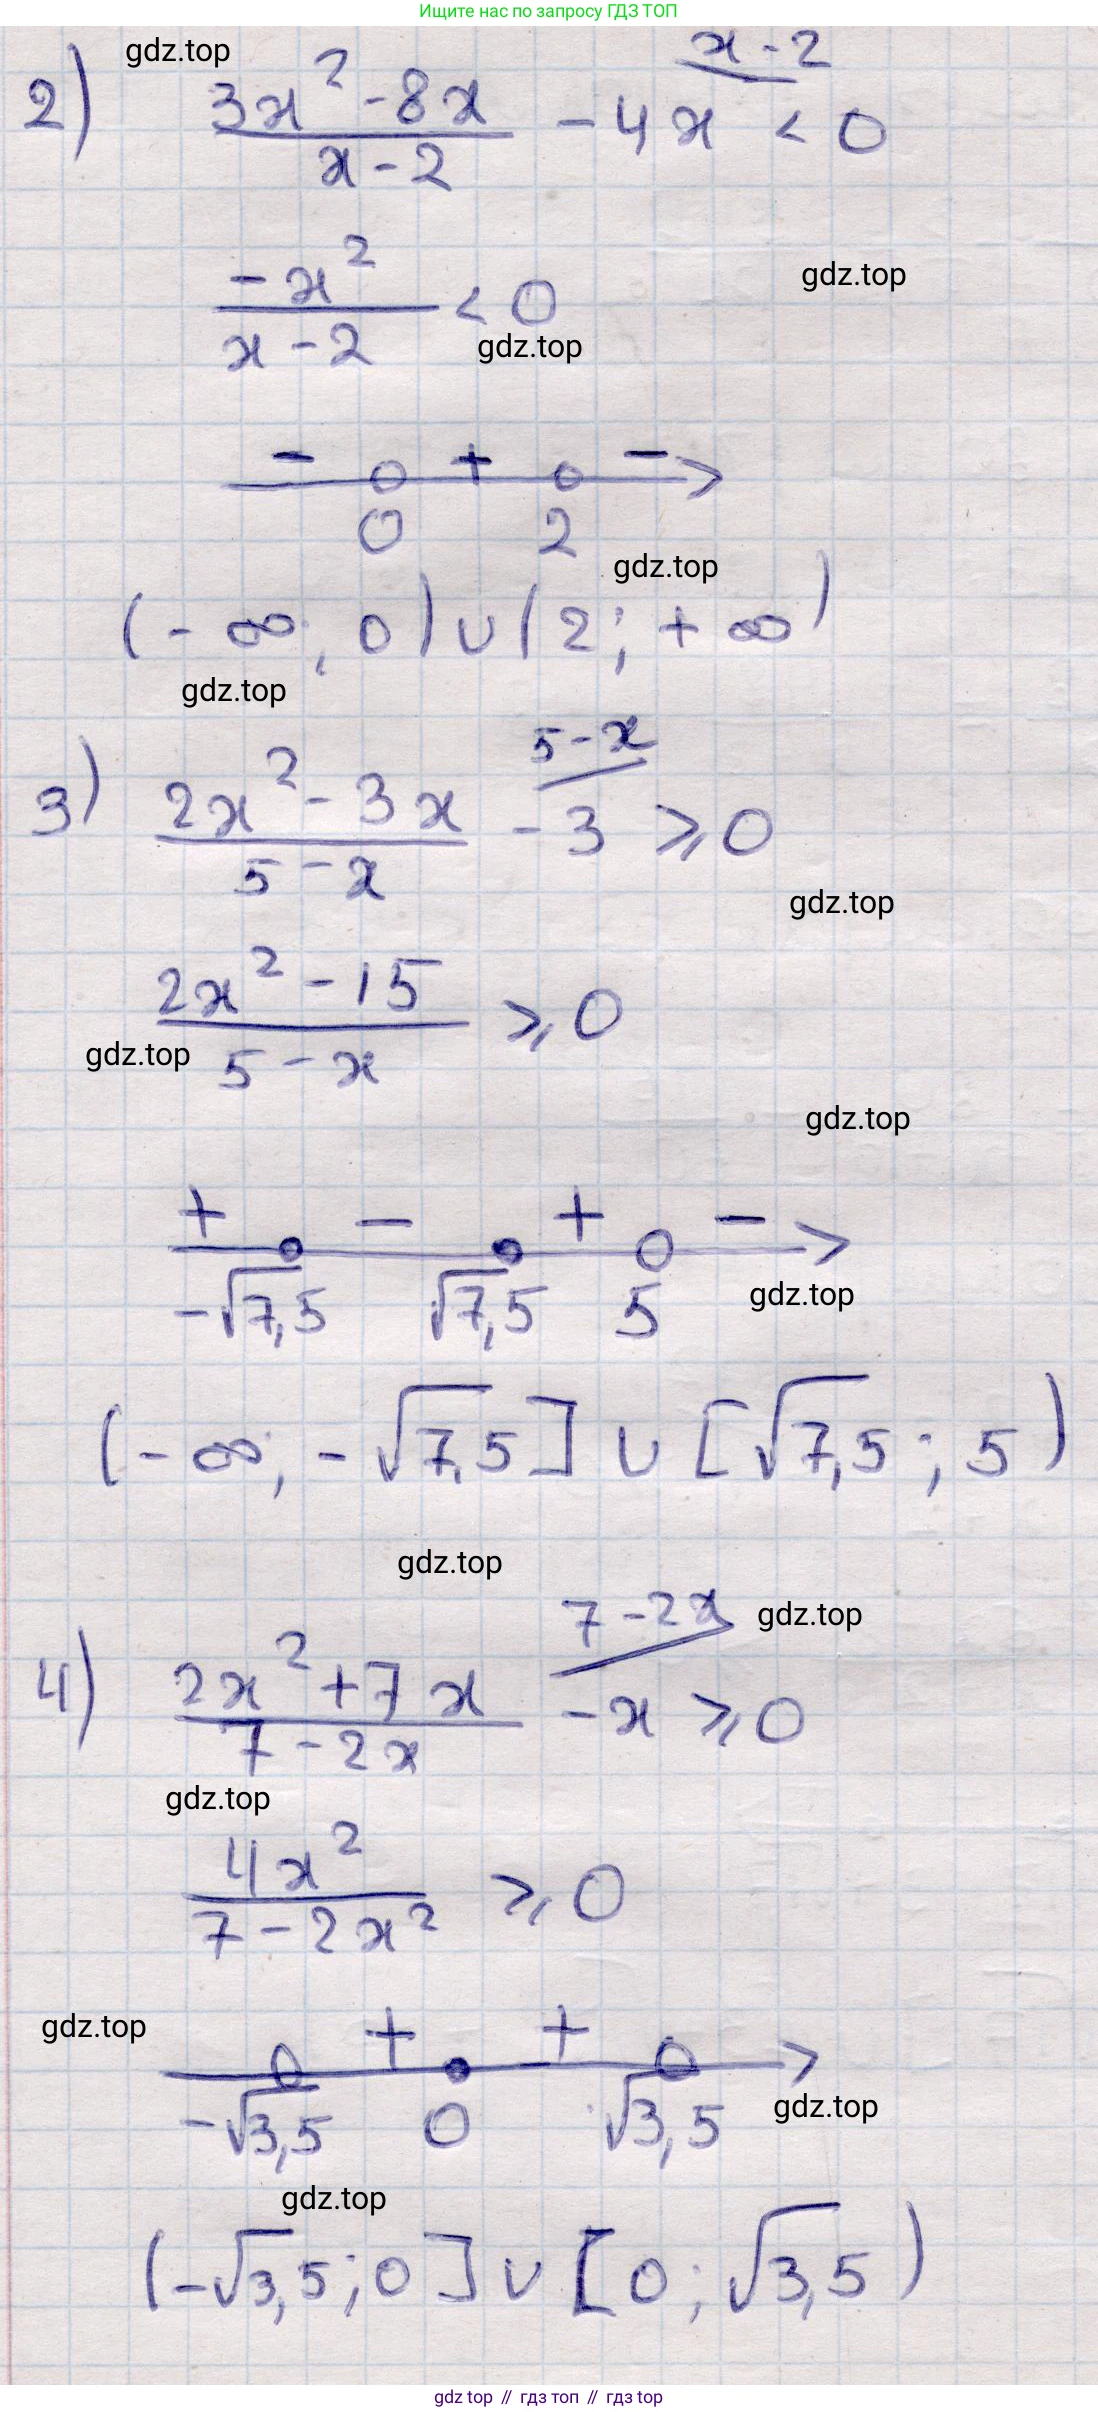 Ищите нас по запросу ГДЗ ТОП
gdz.top
2) (3x² - 8x)/(x - 2) - 4x < 0
x - 2
-x²/(x - 2) < 0
gdz.top
gdz.top
- + - 
0 2
gdz.top
(-∞; 0) ∪ (2; +∞)
gdz.top
3) (2x² - 3x)/(5 - x) - 3 ⩾ 0
5 - x
gdz.top
(2x² - 15)/(5 - x) ⩾ 0
gdz.top
gdz.top
+ - + -
-√7,5 √7,5 5
gdz.top
(-∞; -√7,5] ∪ [√7,5; 5)
gdz.top
4) (2x² + 7x)/(7 - 2x) - x ⩾ 0
7 - 2x
gdz.top
gdz.top
4x²/(7 - 2x²) ⩾ 0
gdz.top
+ +
-√3,5 0 √3,5
gdz.top
gdz.top
(-√3,5; 0] ∪ [0; √3,5)
gdz top // гдз топ // гdз top